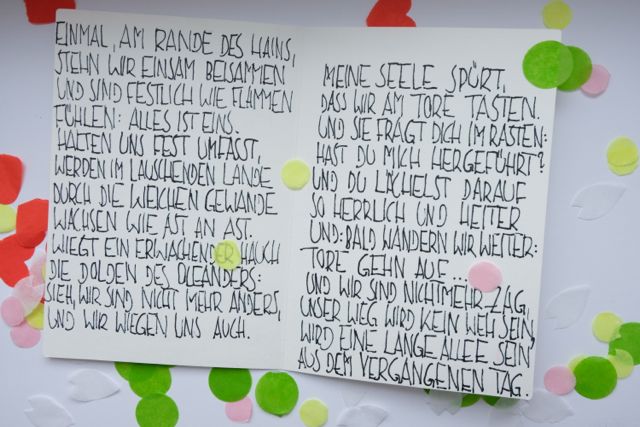 EINMAL, AM RANDE DES HAINS,
STEHN WIR EINSAM BEISAMMEN
UND SIND FESTLICH WIE FLAMMEN
FÜHLEN: ALLES IST EINS.
HALTEN UNS FEST UMFASST,
WERDEN IM LAUSCHENDEN LANDE
DURCH DIE WEICHEN GEWANDE
WACHSEN WIE AST AN AST.
WIEGT EIN ERWACHENDER HAUCH
DIE DOLDEN DES OLEANDERS:
SIEH, WIR SIND NICHT MEHR ANDERS,
UND WIR WIEGEN UNS AUCH.
MEINE SEELE SPÜRT,
DASS WIR AM TORE TASTEN.
UND SIE FRAGT DICH IM RASTEN:
HAST DU MICH HERGEFÜHRT?
UND DU LÄCHELST DARAUF
SO HERRLICH UND HEITER
UND: BALD WANDERN WIR WEITER:
TORE GEHN AUF...
UND WIR SIND NICHTMEHR ZAG,
UNSER WEG WIRD KEIN WEH SEIN,
WIRD EINE LANGE ALLEE SEIN
AUS DEM VERGANGENEN TAG.